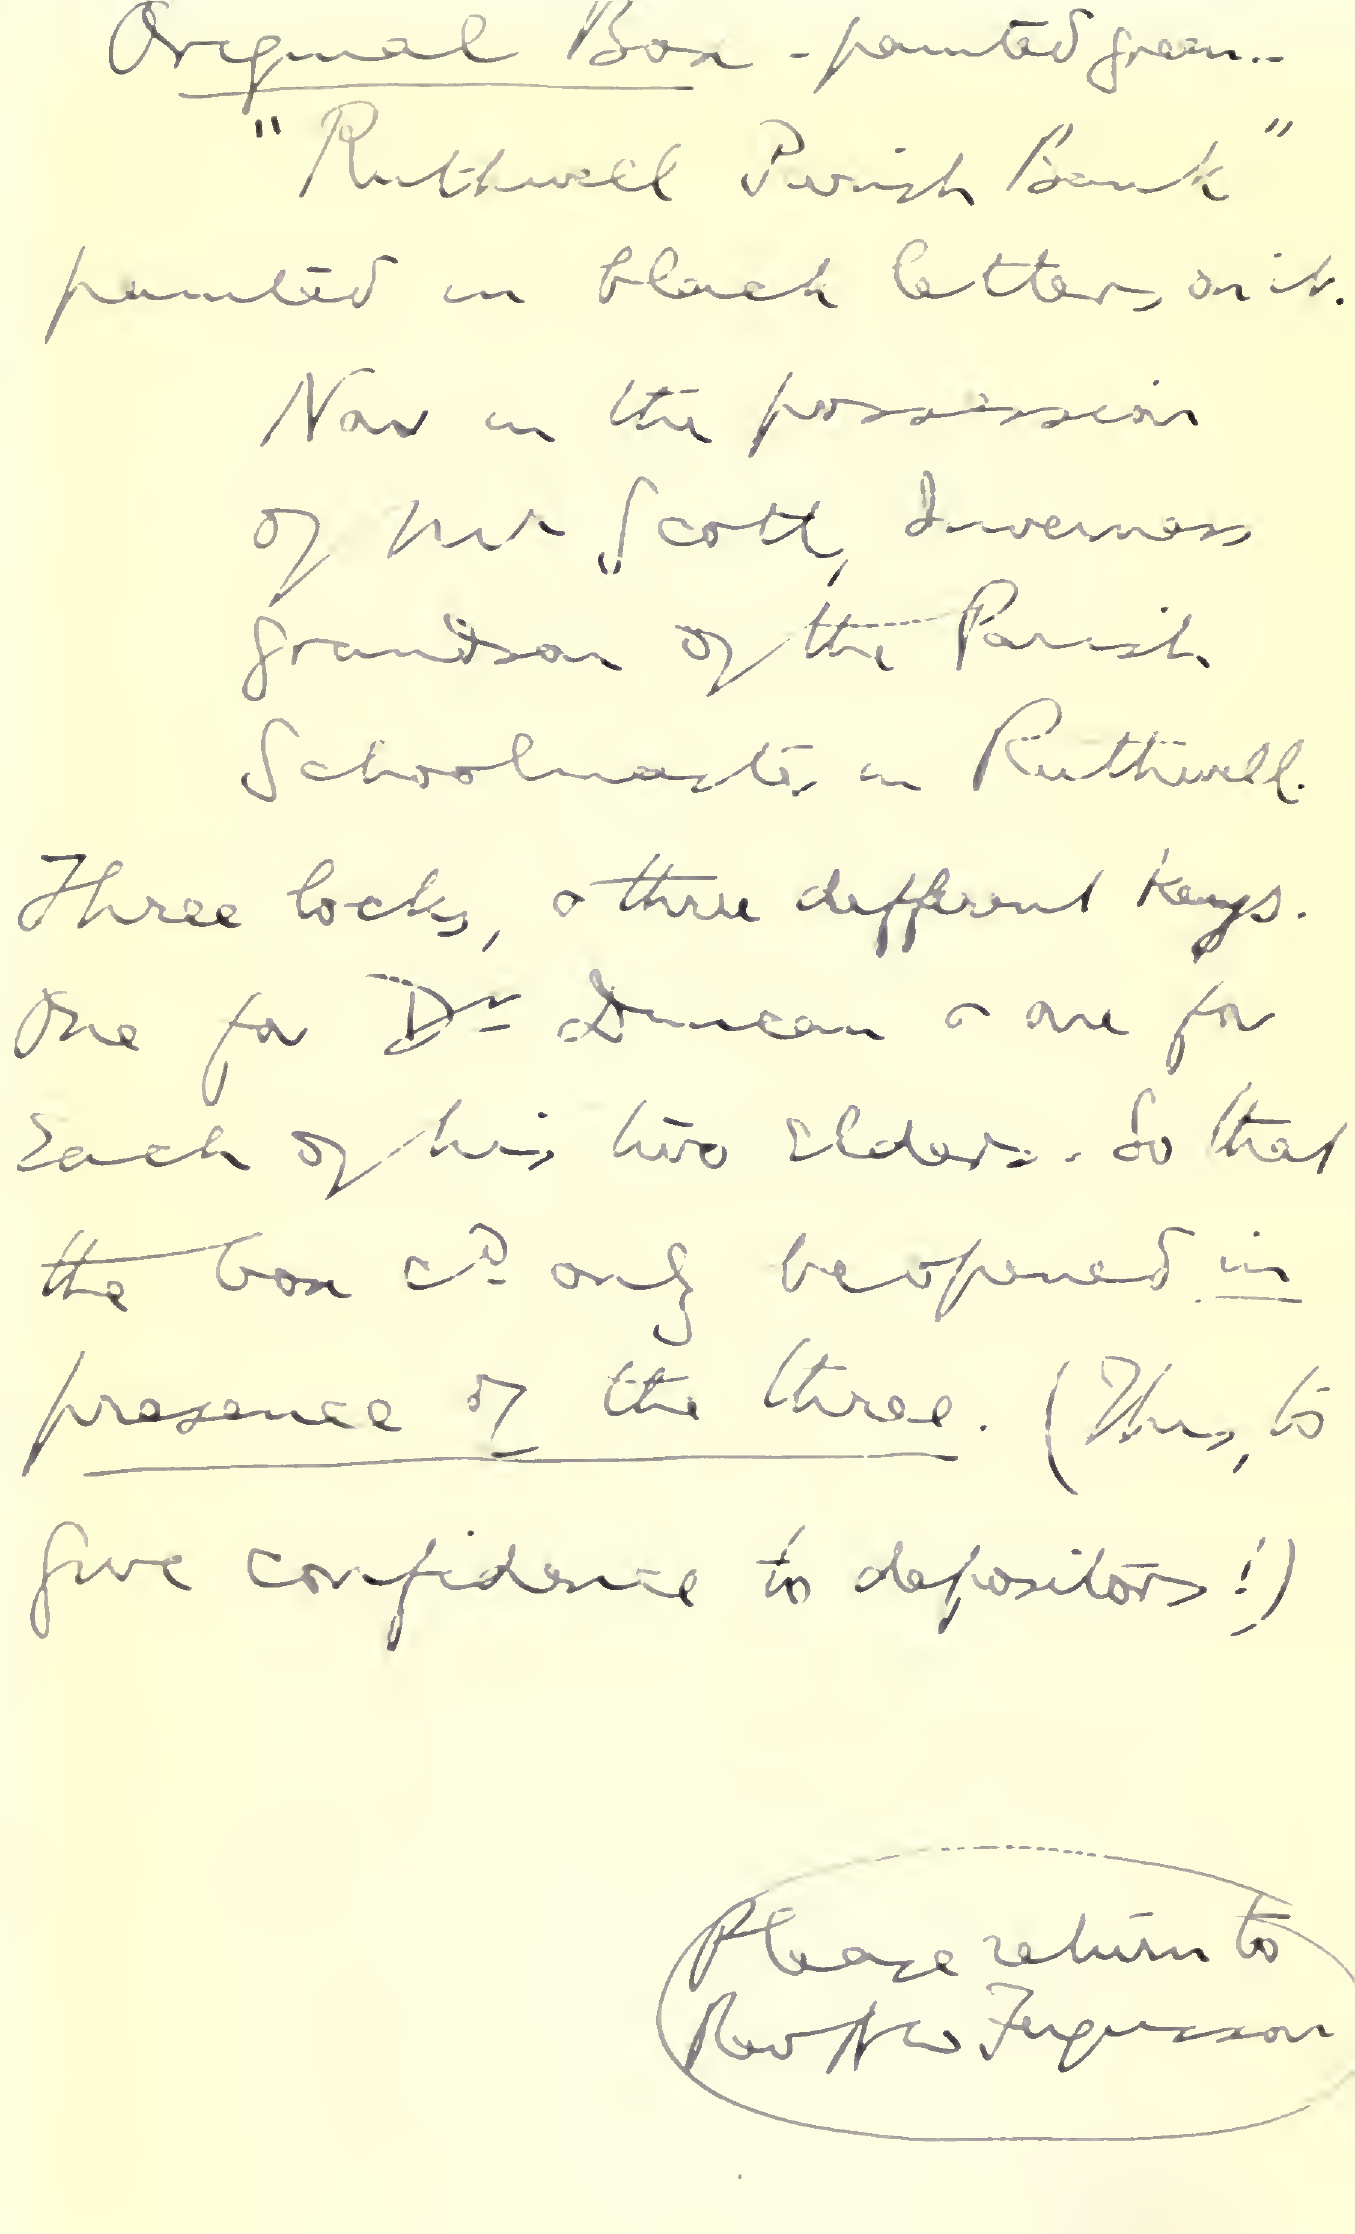 Original Box - painted green..
"Ruthwell Parish Bank"
painted in black letters on it.
Now in the possession
of Mr Scott, Inverness
grandson of the Parish
Schoolmaster in Ruthwell.
Three locks, & three different keys.
One for Dr Duncan & one for
Each of his two Elders. So that
the box cd only be opened in
presence of the three. (Thus, to
give confidence to depositors!)
Please return to
Rev Fergusson